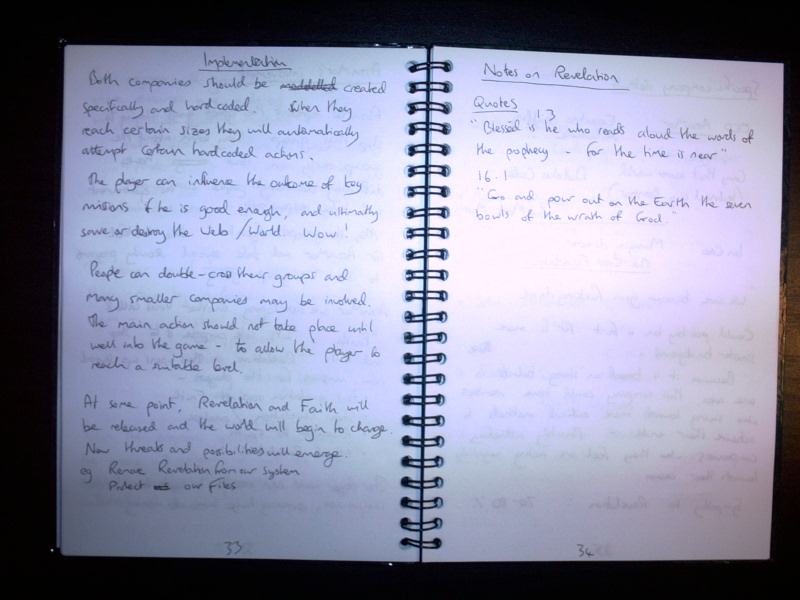 Implementation
Both companies should be modelled created
specifically and hardcoded. When they
reach certain sizes they will automatically
attempt certain hardcoded actions.
The player can influence the outcome of key
missions if he is good enough, and ultimatly
save or destroy the Web / World. Wow!
People can double-cross their groups and
many smaller companies may be involved.
The main action should not take place until
well into the game - to allow the player to
reach a suitable level.
At some point, Revelation and Faith will
be released and the world will begin to change.
New threats and possibilities will emerge.
eg Remove Revelation from our system
Protect our files
33
Notes on Revelation
Quotes
1.3
"Blessed is he who reads aloud the words of
the prophecy - for the time is near"
16.1
"Go and pour out on the Earth the seven
bowls of the wrath of God."
34